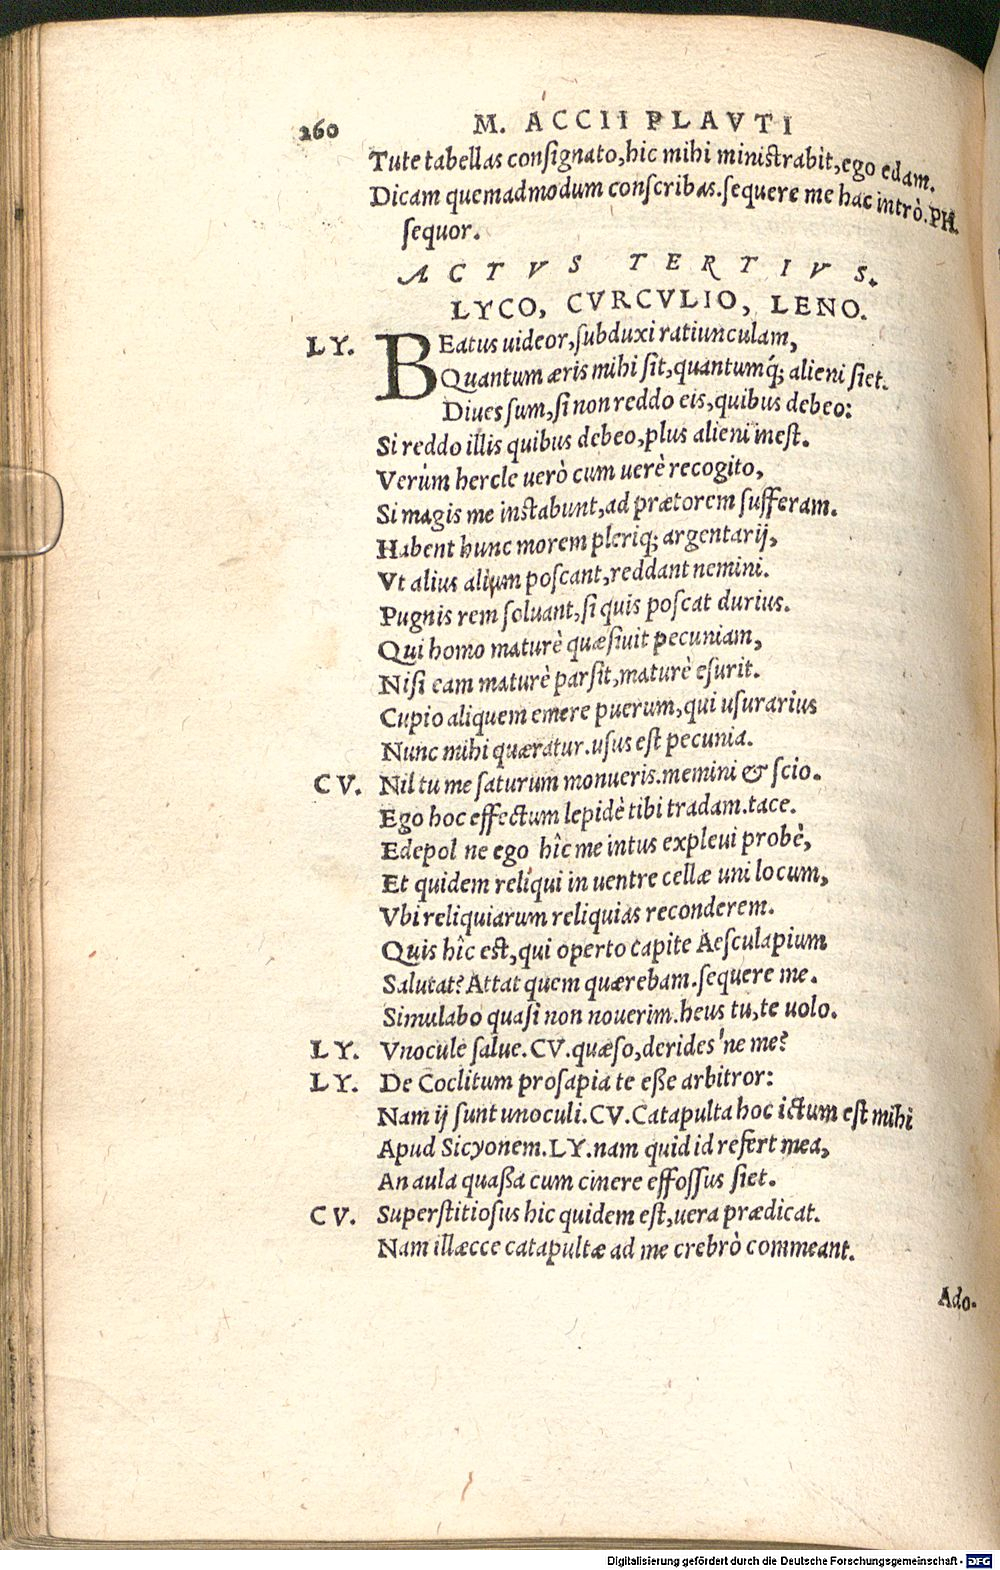 260 M. ACCII PLAVTI
Tute tabellas consignato, hic mihi ministrabit, ego edam.
Dicam quemadmodum conscribas. sequere me hac intrò. PH.
sequor.
ACTVS TERTIVS.
LYCO, CVRCVLIO, LENO.
LY. BEatus uideor, subduxi ratiunculam,
Quantum æris mihi sit, quantumq́; alieni siet.
Diues sum, si non reddo eis, quibus debeo:
Si reddo illis quibus debeo, plus alieni inest.
Verùm hercle uerò cum uerè recogito,
Si magis me instabunt, ad prætorem sufferam.
Habent hunc morem pleriq; argentarij,
Vt alius alium poscant, reddant nemini.
Pugnis rem soluant, si quis poscat durius.
Qui homo maturè quæsiuit pecuniam,
Nisi eam maturè parsit, maturè esurit.
Cupio aliquem emere puerum, qui usurarius
Nunc mihi quæratur. usus est pecunia.
CV. Nil tu me saturum monueris. memini & scio.
Ego hoc effectum lepidè tibi tradam. tace.
Edepol ne ego hîc me intus expleui probè,
Et quidem relíqui in uentre cellæ uni locum,
Vbi reliquiarum reliquias reconderem.
Quis hîc est, qui operto capite Aesculapium
Salutat? Attat quem quærebam. sequere me.
Simulabo quasi non nouerim. heus tu, te uolo.
LY. Vnocule salue. CV. quæso, derides'ne me?
LY. De Coclitum prosapia te eße arbitror:
Nam ij sunt unoculi. CV. Catapulta hoc ictum est mihi
Apud Sicyonem. LY. nam quid id refert mea,
An aula quaßa cum cinere effossus siet.
CV. Superstitiosus hic quidem est, uera prædicat.
Nam illæcce catapultæ ad me crebrò commeant.
Ado-
Digitalisierung gefördert durch die Deutsche Forschungsgemeinschaft - DFG